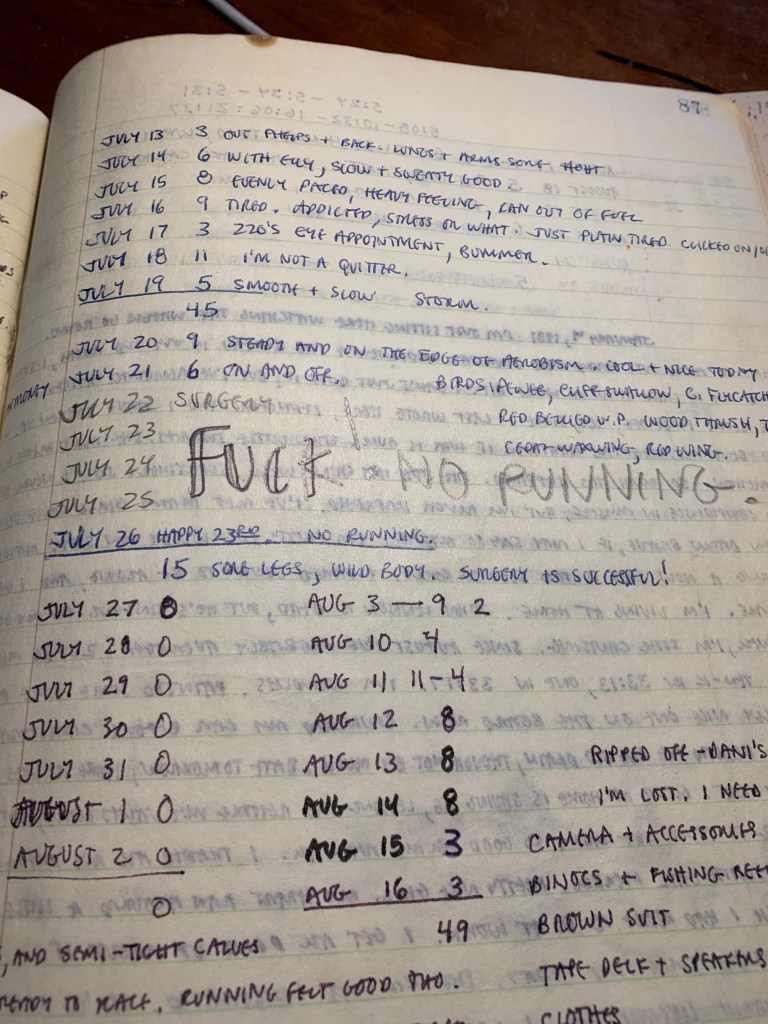 87
JULY 13 3 OUT PHELPS + BACK. LUNGS + ARMS SORE HOT
JULY 14 6 WITH , SLOW + SWEATY GOOD
JULY 15 8 EVENLY PACED, HEAVY FEELING, RAN OUT OF FUEL
JULY 16 9 TIRED. ADDICTED, STRESS OR WHAT. JUST PLAIN TIRED. CLICKED ON
JULY 17 3 220'S EYE APPOINTMENT, BUMMER.
JULY 18 11 I'M NOT A QUITTER.
JULY 19 5 SMOOTH + SLOW STORM.
45
JULY 20 9 STEADY AND ON THE EDGE OF AEROBISM. COOL + NICE TODAY
JULY 21 6 ON AND OFF. BIRDS: PEWEE, CLIFF SWALLOW, C. FLYCATCH
JULY 22 SURGERY RED BELLIED W.P. WOOD THRUSH,
JULY 23 CEDAR WAXWING, RED WING.
JULY 24 FUCK! NO RUNNING.
JULY 25
JULY 26 HAPPY 23RD. NO RUNNING.
15 SORE LEGS, WILD BODY. SURGERY IS SUCCESSFUL!
JULY 27 0 AUG 3 — 9 2
JULY 28 0 AUG 10 4
JULY 29 0 AUG 11 11-4
JULY 30 0 AUG 12 8
JULY 31 0 AUG 13 8 RIPPED OFF - DANI'S
AUGUST 1 0 AUG 14 8 I'M LOST. I NEED
AUGUST 2 0 AUG 15 3 CAMERA + ACCESSORIES
0 AUG 16 3 BINOCS + FISHING REE
49 BROWN SUIT
, AND SEMI-TIGHT CALVES
READY TO RACE. RUNNING FELT GOOD THO. TAPE DECK + SPEAKERS
CLOTHES